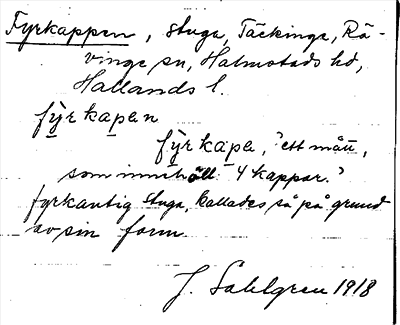 Fyrkappen, stuga, Täckinge, Rä-
vinge sn, Halmstads hd,
Hallands l.
fy̱rka̱pen
fy̱rka̱pa, "ett mått,
som innehöll 4 kappar."
fyrkantig stuga, kallades så på grund
av sin form
J. Sahlgren 1918